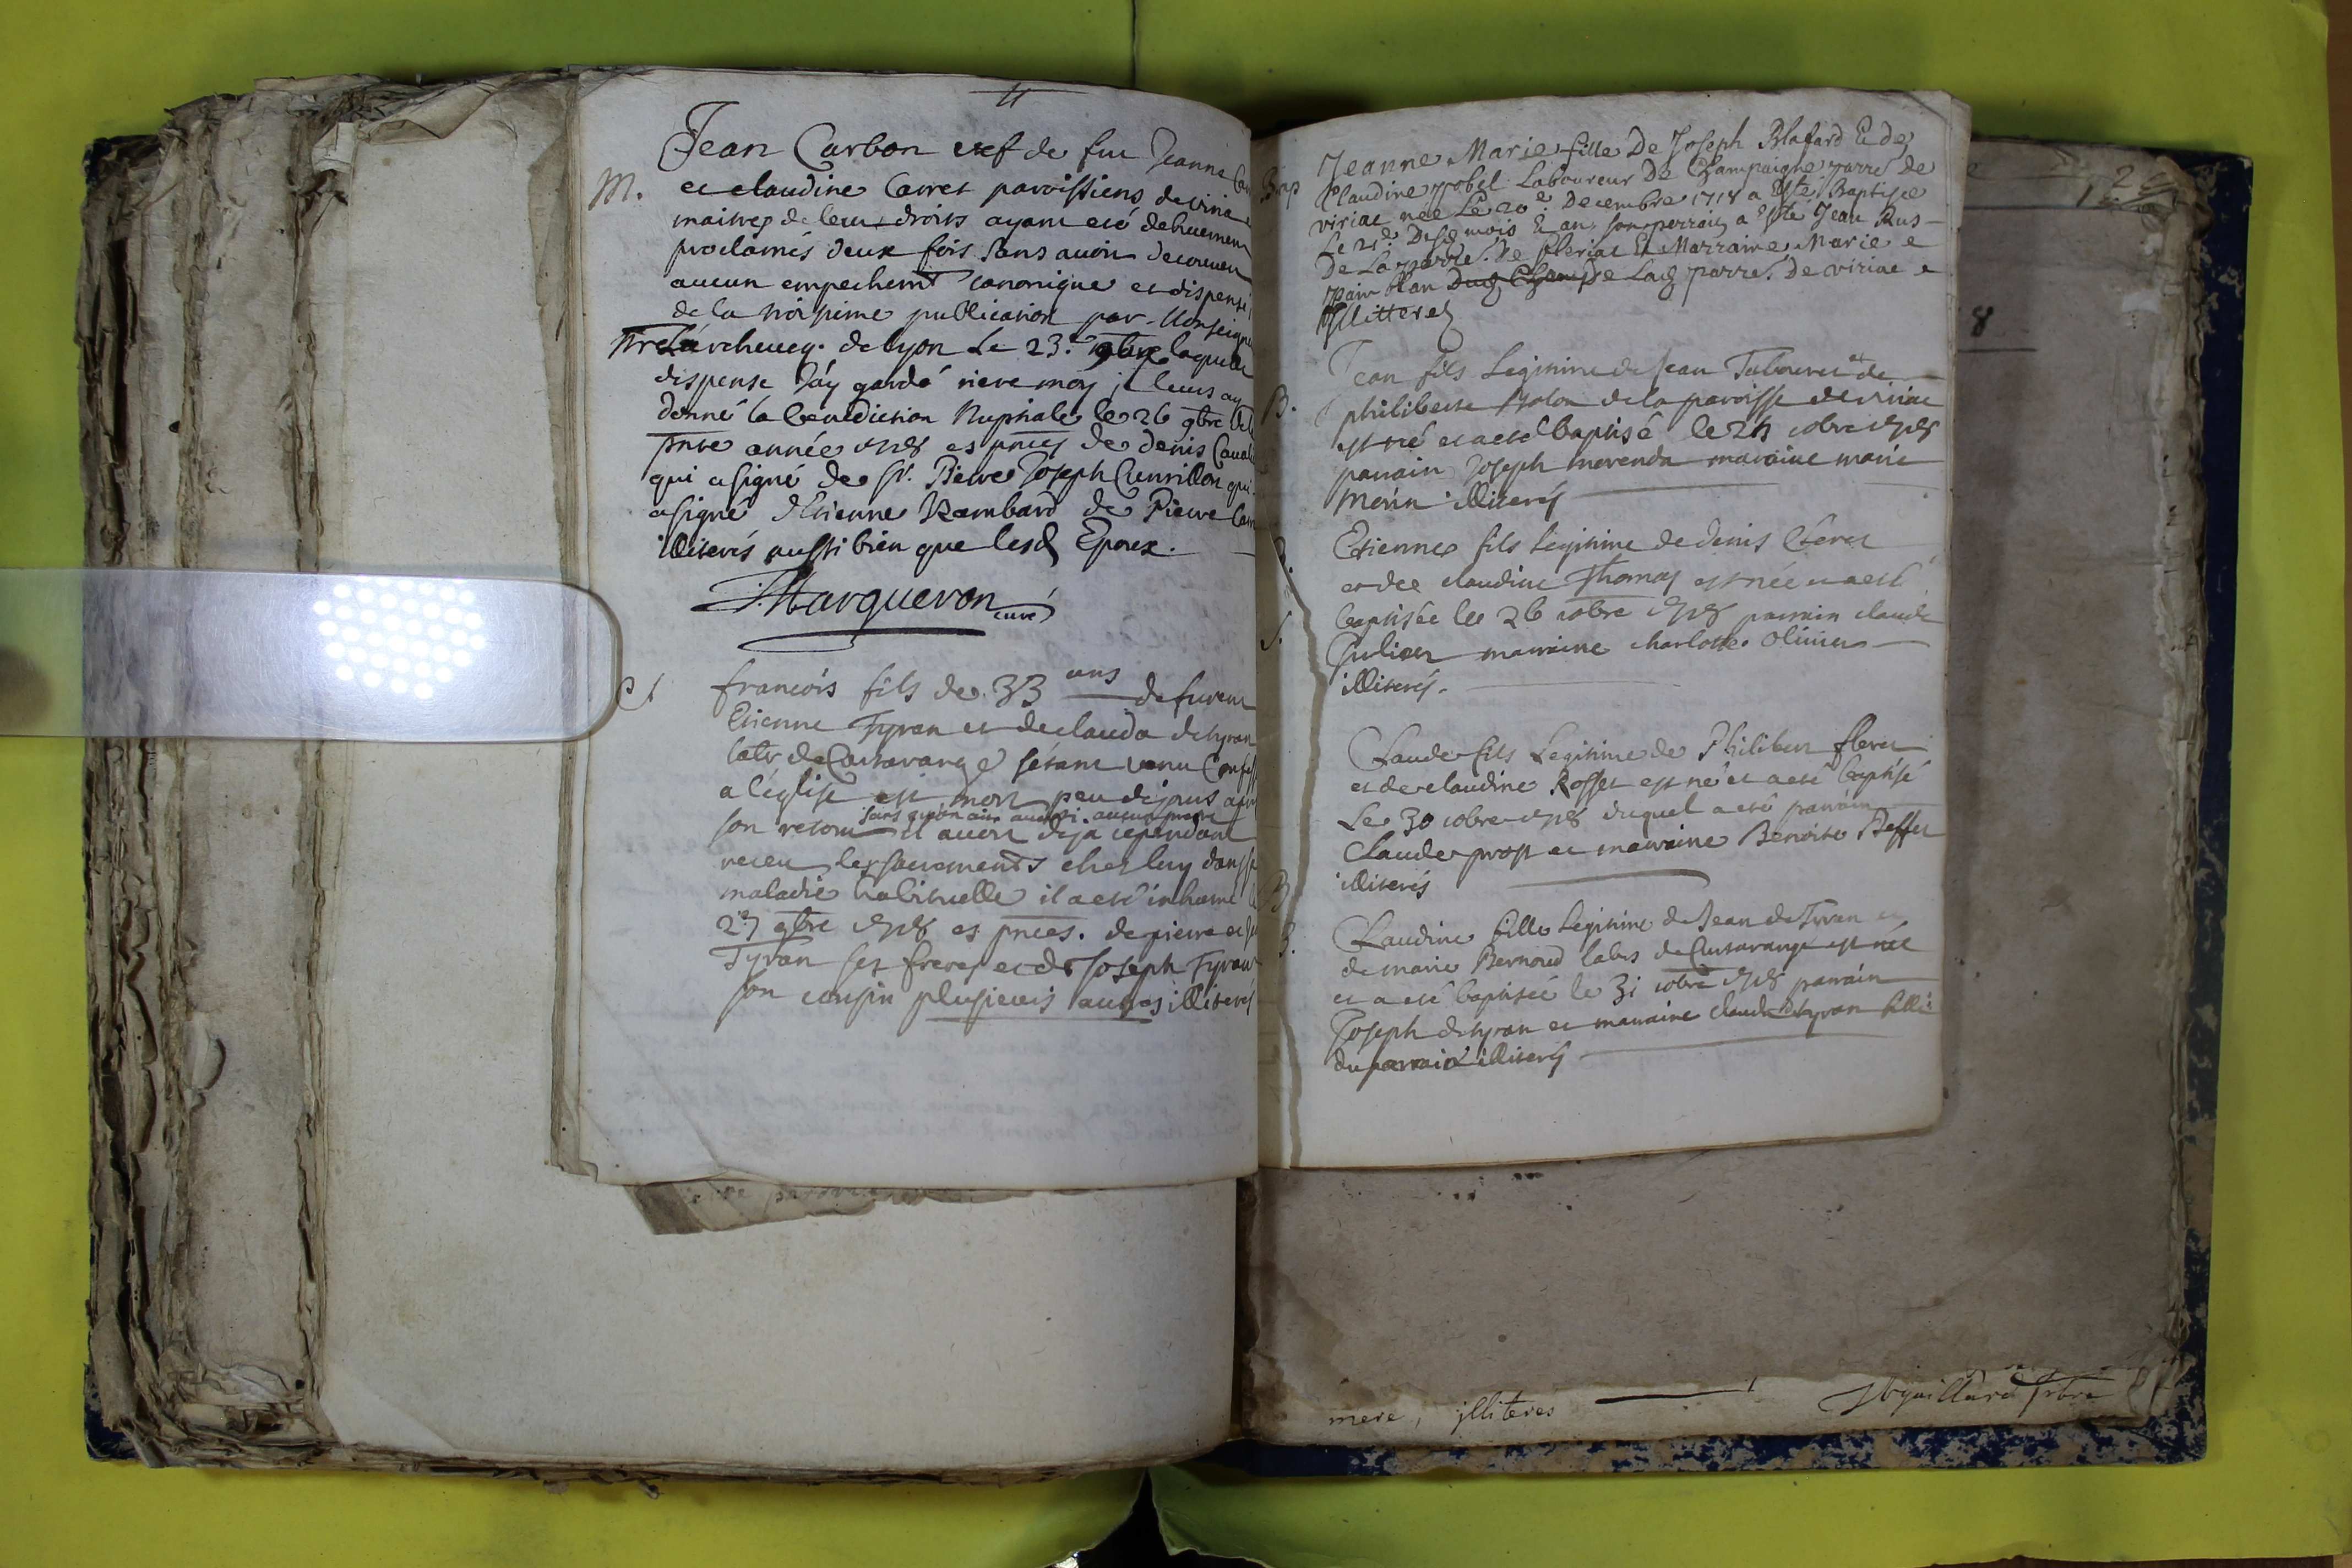 Jean Carbon vef de feu Jeanne
M.
et claudine Carret paroissiens de viria
maitres de leur droits ayant eté dehuement
proclamés deux fois sans avoir decouvert
aucun empechemt canonique et dispensé
de la troisieme publication par Monseign
L'archeveq. de lyon Le 23e 9bre laquelle
dispense J'ay gardé rière moy je leurs ay
donné la benediction Nuptiale le 26 9bre
pnte année 1718 es pnces de denis
qui a signé de Sr. Pierre Joseph Cunrillon qui
a signé d'Etienne Rambard de Pierre
illiterés aussi bien que lesd Epoux.
Marqueron curé
francois fils de 33 ans de furent
Etienne Tyran et de clauda detyran
labr de Curtarange s'etant venu
a l'église est mort peu de jours
sans qu'on aie aucun
son retour il avoit deja cependant
receu les sacrements chez luy dans
maladie habituelle il a eté inhumé
27 9bre 1718 es pnces. de pierre et
Tyran ses freres et de Joseph Tyran
son cousin plusieurs autres illiterés
Bap
Jeanne Marie fille De Joseph Blafard E de
Claudine Laboureur De Champaigne parre de
viriat née Le 20e Decembre 1718 a Este Baptisee
Le 21e Dud mois E an, son parrain a Este Jean Rus
De La parre. De fleriat Et Marraine Marie
pain blan De Lad parre. De viriat
Illitterez
B.
Jean fils Legitime de Jean Tabouret et de
philiberte de la paroisse de viriat
est né et a eté baptisé le 1718
parrain Joseph morenda maraine marie
Morin illiterés
Etienne fils legitime de denis
et de claudine Thomas est née et a eté
baptisée le 26 1718 parrain claude
marraine charlotte Olivier
illiterés.
Claude fils Legitime de Philibert fleret
et de claudine Rosset est né et a eté baptisé
Le 30 1718 duquel a eté parrain
Claude prost et marraine Benoite
illiterés
Claudine fille Legitime de Jean de Tyran et
de marie Bernoud labrs de Curtarange est née
et a eté baptisée le 31 1718 parrain
Joseph detyran et marraine claudine detyran fille
du parrain illiterés
mere, illiteres